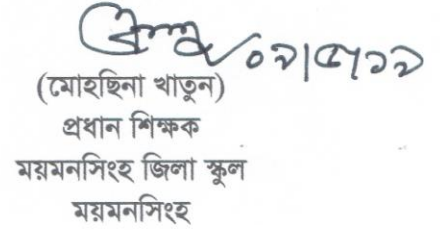 ০২|৫|১২
(মোহছিনা খাতুন)
প্রধান শিক্ষক
ময়মনসিংহ জিলা স্কুল
ময়মনসিংহ